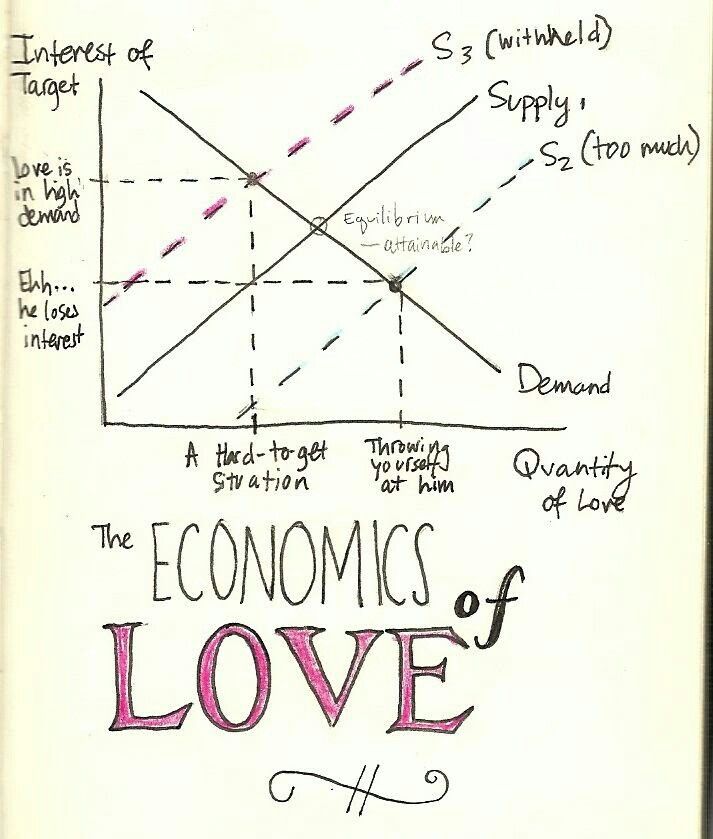 Interest of
Target
S3 (withheld)
Supply1
S2 (too much)
Love is
in high
demand
Equilibrium
— attainable?
Ehh...
he loses
interest
Demand
A Hard-to-get
Situation
Throwing
yourself
at him
Quantity
of Love
The ECONOMICS
of
LOVE